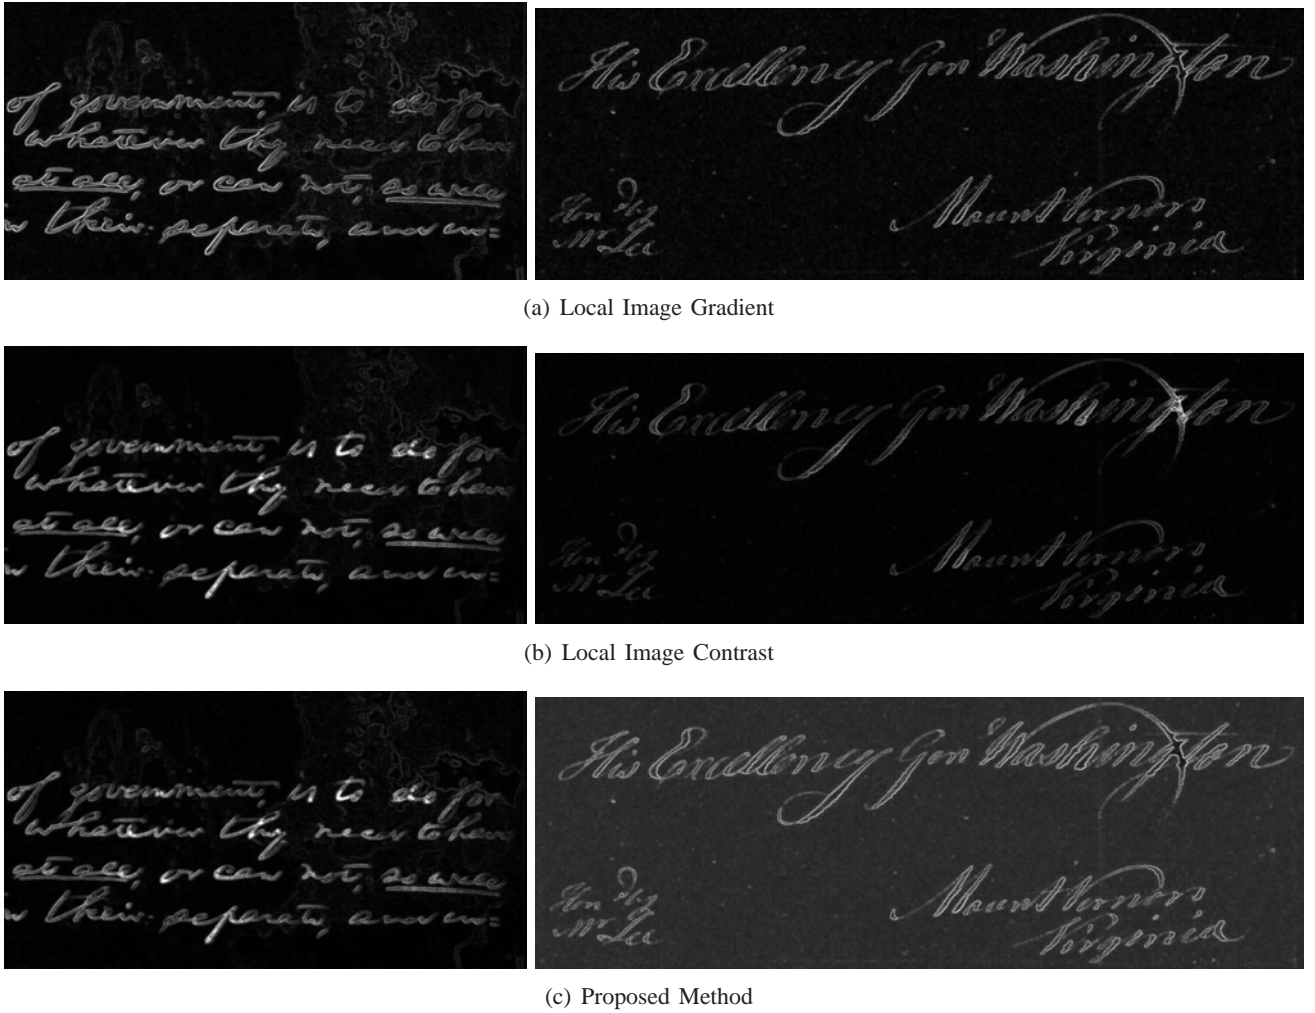 of government, is to do for
whatever they need to have
at all, or can not, so well
in their separate, and in=
His Excellency Gen Washington
Mount Vernon
Virginia
Mr Lee
(a) Local Image Gradient
of government, is to do for
whatever they need to have
at all, or can not, so well
in their separate, and in=
His Excellency Gen Washington
Mount Vernon
Virginia
Mr Lee
(b) Local Image Contrast
of government, is to do for
whatever they need to have
at all, or can not, so well
in their separate, and in=
His Excellency Gen Washington
Mount Vernon
Virginia
Mr Lee
(c) Proposed Method